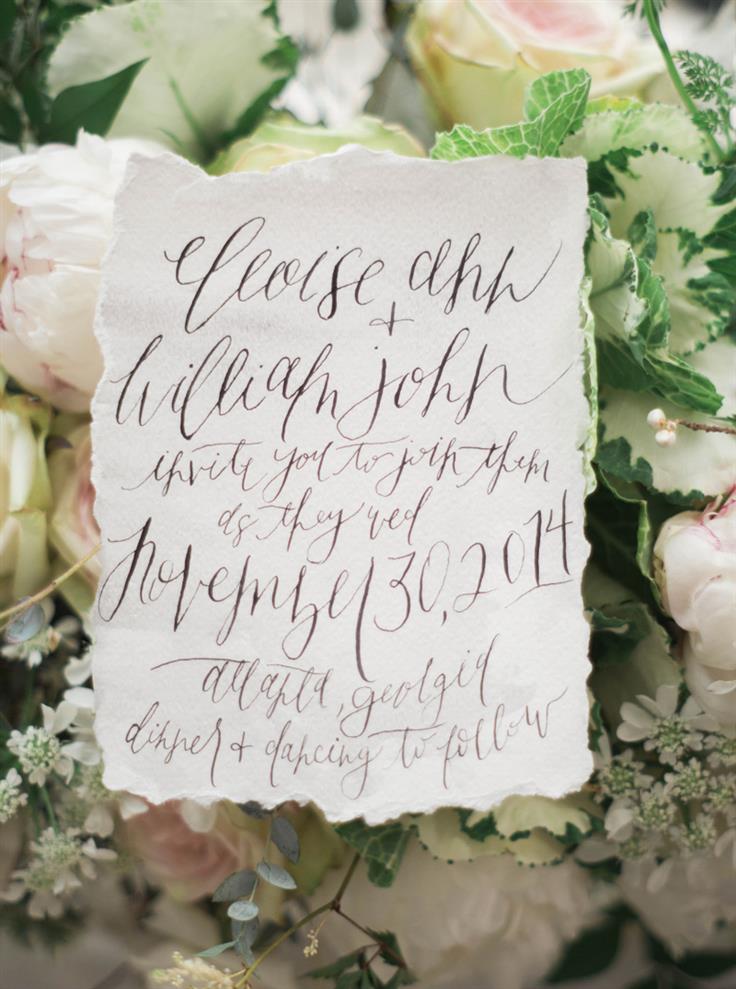 Eloise Ann
+
William John
invite you to join them
as they wed
November 30, 2014
atlanta, georgia
dinner + dancing to follow